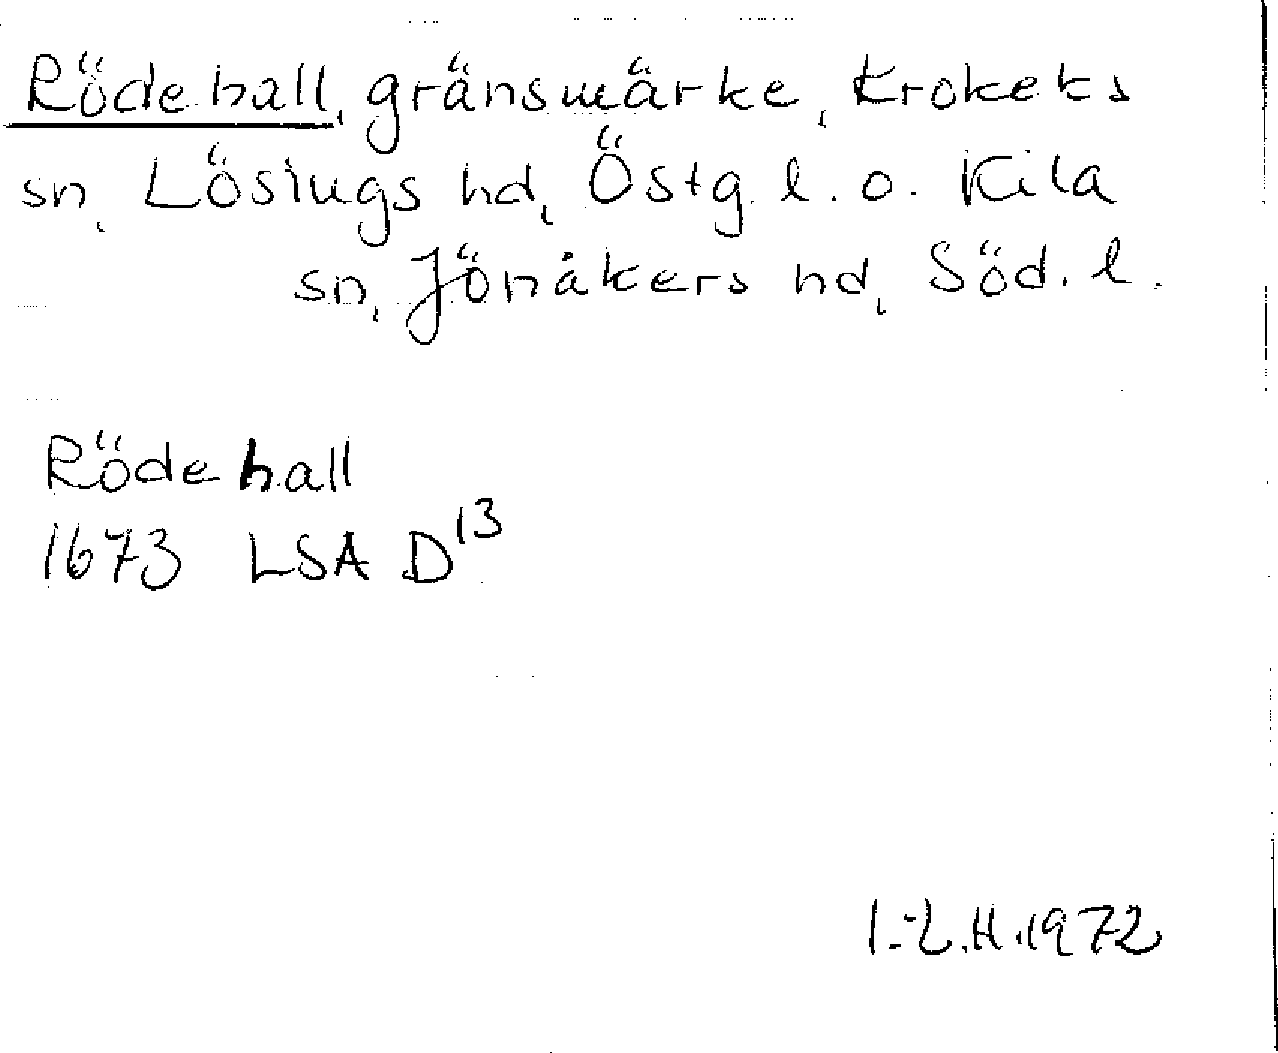 Rödehall, gränsmärke, Krokeks
sn, Lösings hd, Östg. l. o. Kila
sn, Jönåkers hd, Söd. l.
Rödehall
1673 LSA D13
I.-L.H.1972